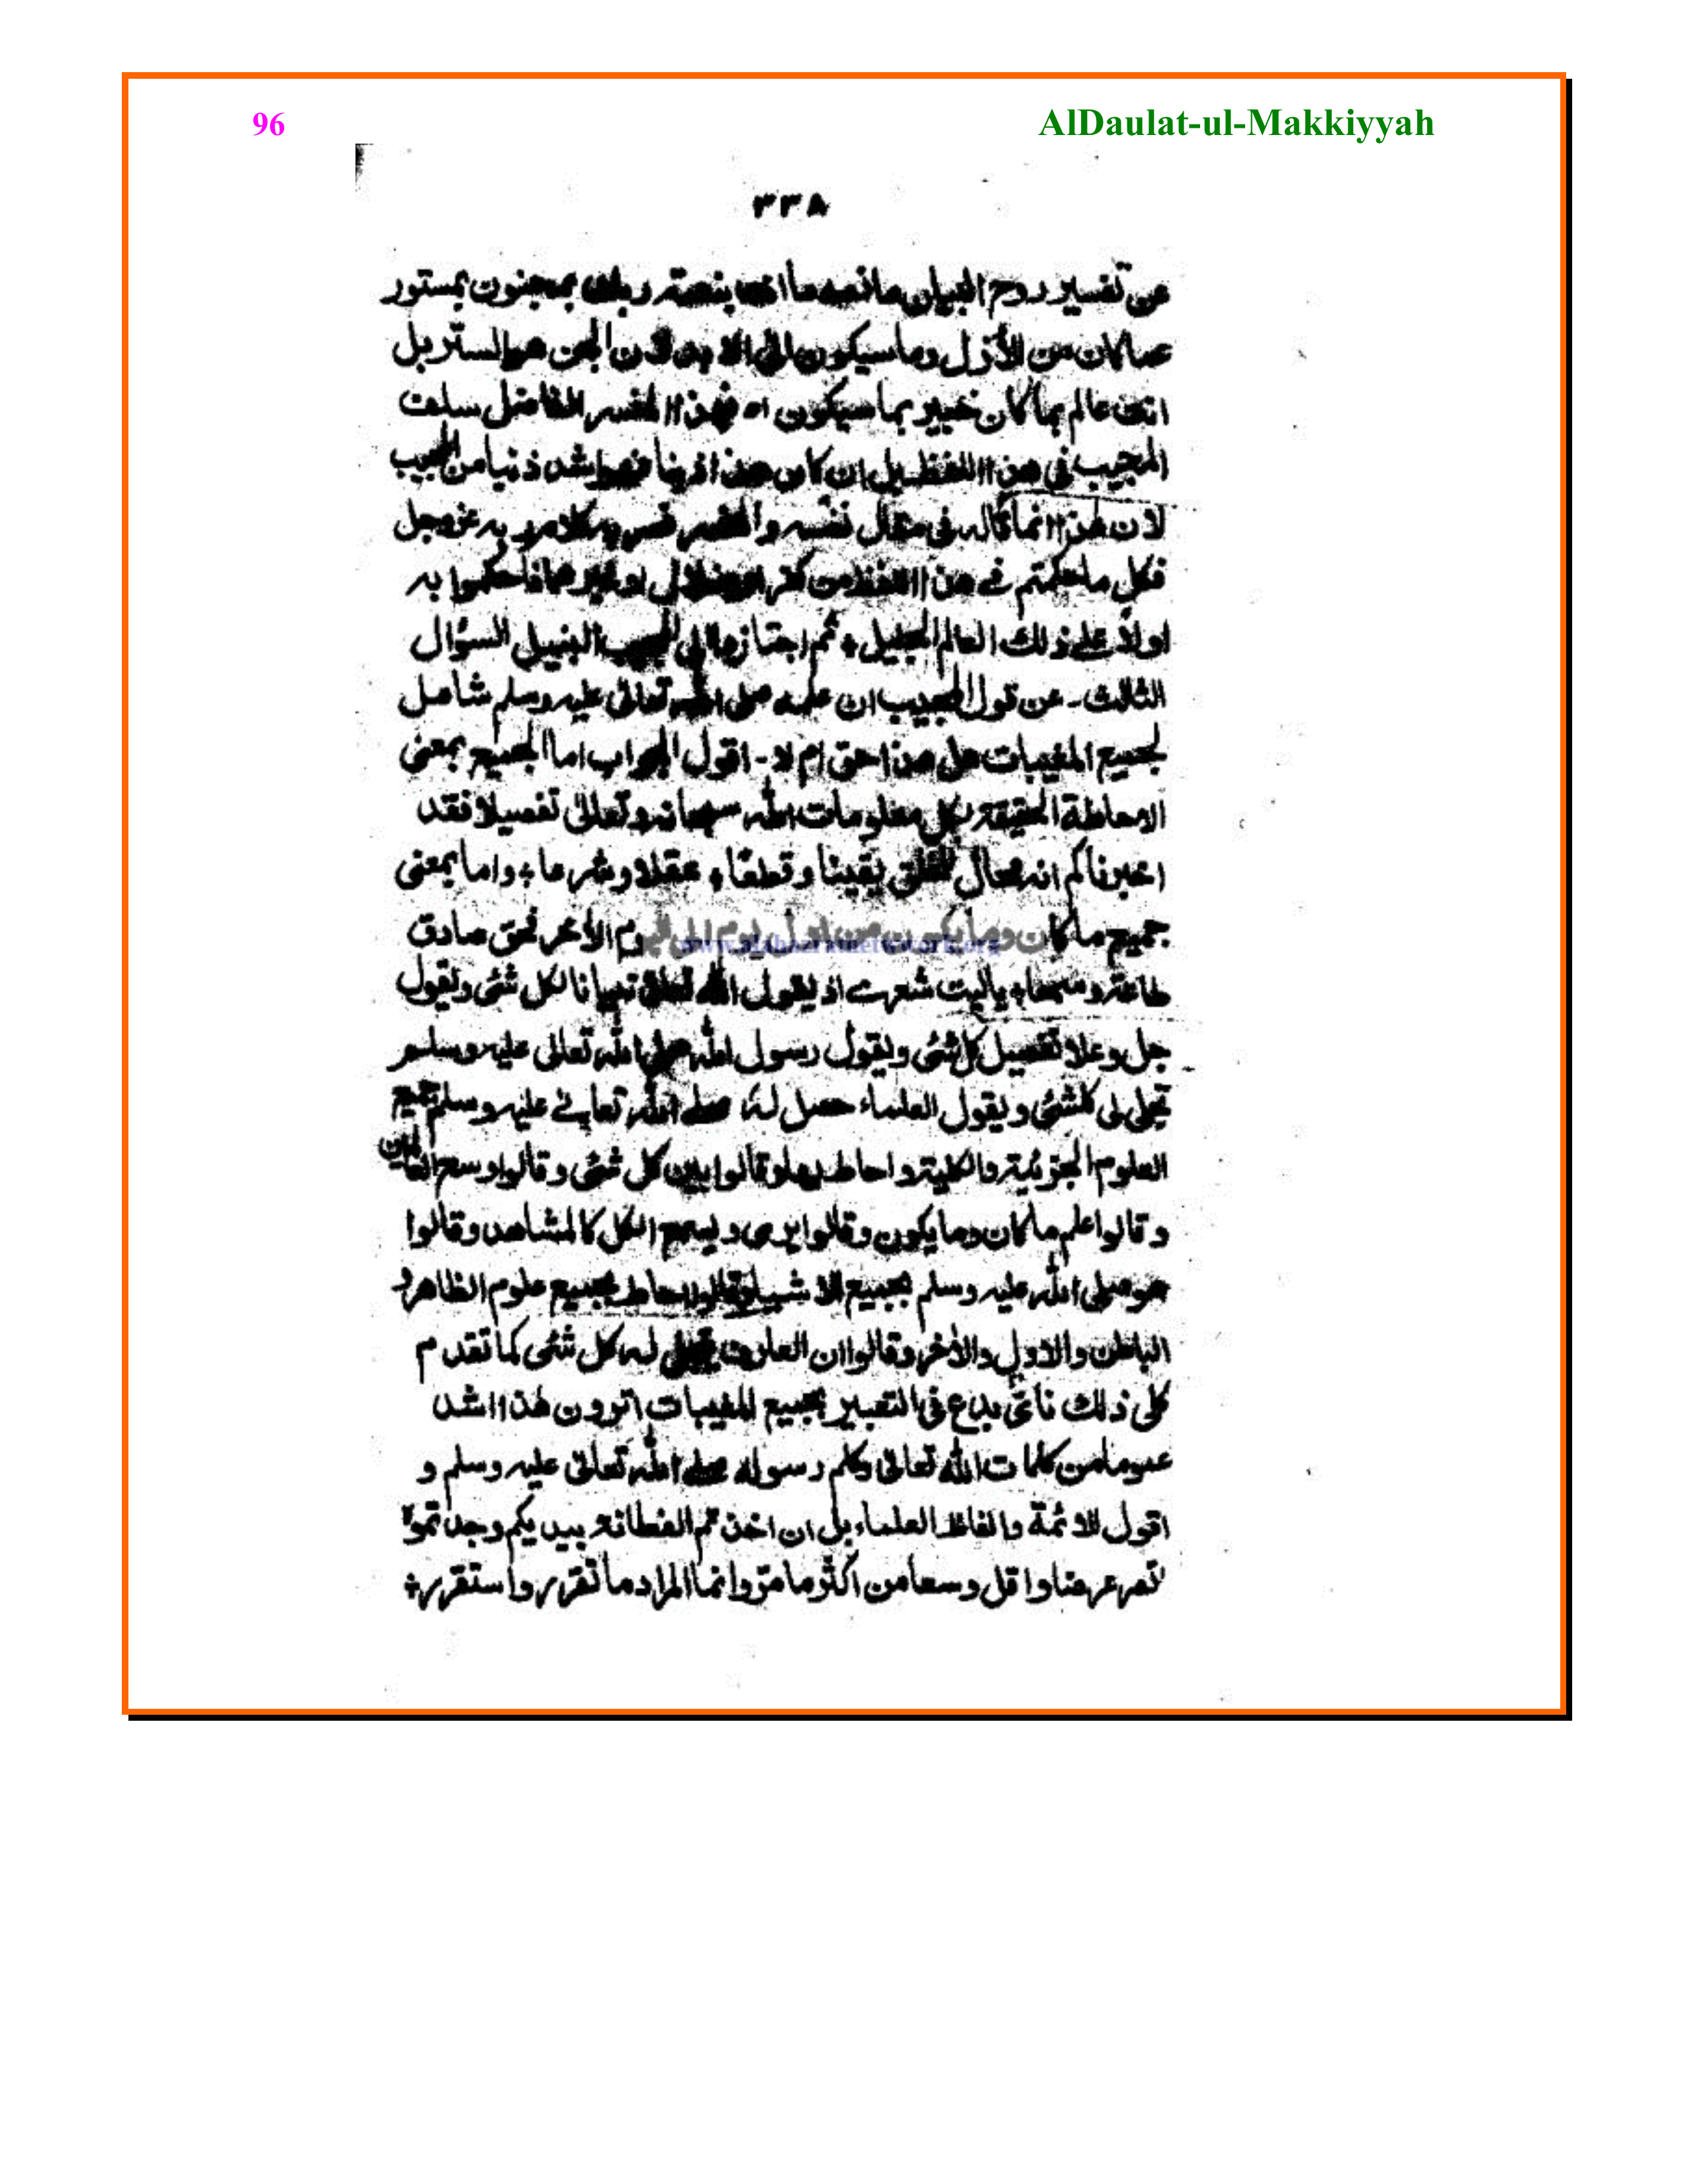 96 AlDaulat-ul-Makkiyyah
٣٣٨
عن تفسير روح البيان ما نصه ما انت بنعمة ربك بمجنون بمستور
عما كان من الأزل وما سيكون الى الابد لان الجن هو الستر بل
انت عالم بما كان خبير بما سيكون اه فهذا المفسر الفاضل سلف
المجيب فى هذا اللفظ ان كان هذا ذنبا فهو اشد ذنبا من المجيب
لان هذا انما قاله فى مقال نفسه والمفسر فسر به كلام ربه عزوجل
فكل ما حكمتم فے هذا اللفظ من كفر او ضلال او غيرهما فاحكموا به
اولاً على ذلك العالم الجليل، ثم اجتازوا الى المجيب النبيل السؤال
الثالث۔ عن قول المجيب ان علمه صلى الله تعالى عليه وسلم شامل
لجميع المغيبات هل هذا حق ام لا۔ اقول الجواب اما الجميع بمعنى
الاحاطة الحقيقة بكل معلومات الله سبحانه وتعالى تفصيلا فقد
اخبرناكم انه محال للخلق يقينا وقطعًا، عقلا وشرعا، واما بمعنى
جميع ما كان وما يكون من اول يوم الى اليوم الأخر فحق صادق
www.alahazratnetwork.org
ياليت شعرے اذ يقول الله تعالى تبيانا لكل شئى ويقول
جل وعلا تفصيل كل شئى ويقول رسول الله صلى الله تعالى عليه وسلم
تجلى لى كلشئى ويقول العلماء حصل له صلے الله تعالے عليه وسلم جميع
العلوم الجزئية والكلية واحاط بها وقالوا بين كل شئى وقالوا وسع العالمين
وقالوا علم ما كان وما يكون وقالوا يرى ويسمع الكل كالمشاهد وقالوا
هو صلى الله عليه وسلم بجميع الاشياء وقالوا احاط بجميع علوم الظاهر و
الباطن والاول والأخر وقالوا ان العارف تجلى له كل شئى كما تقدم
كل ذلك فاى بدع فى التعبير بجميع المغيبات اترون هذا اشد
عموما من كلمات الله تعالى وكلم رسوله صلے الله تعالى عليه وسلم و
اقول الائمة والفاظ العلماء بل ان اخذتم الفطانة بيديكم وجدتموا
وسعا من اكثر ما مرّ وانما المراد ما تقرر واستقرر،